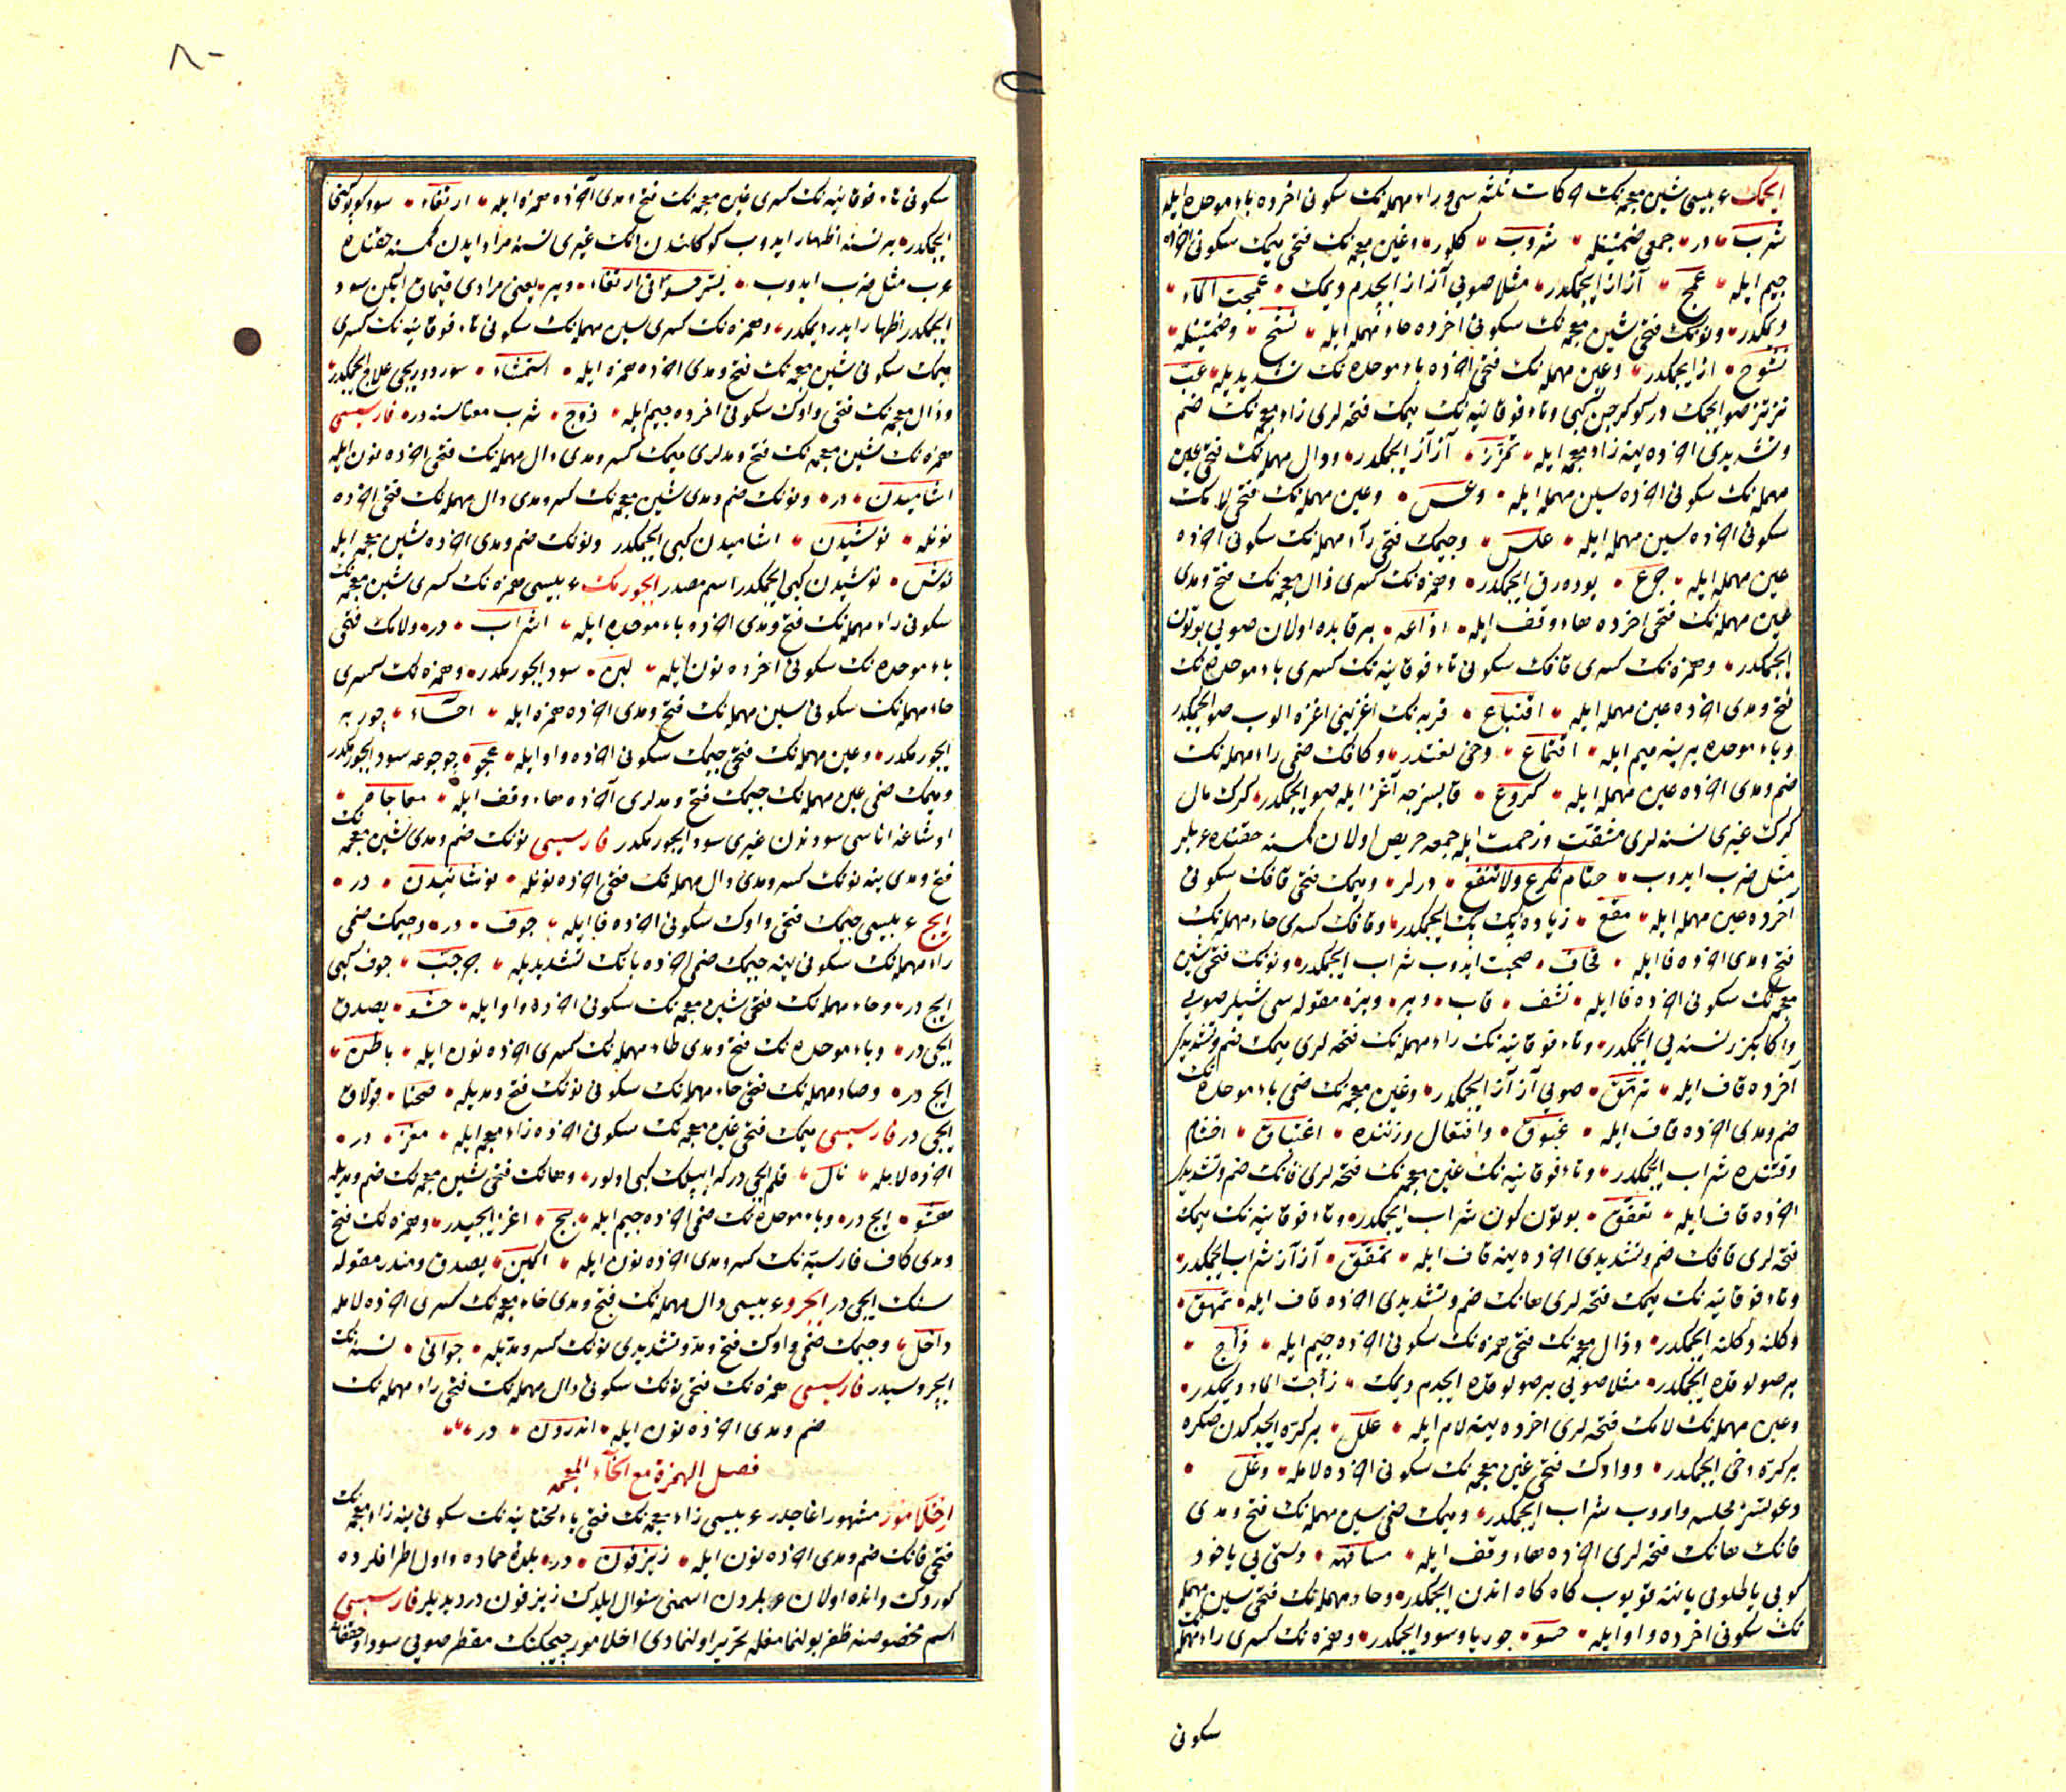 ایچمك عربیسی شین معجمه‌نك حركات ثلثه‌سی و راء مهمله‌نك سكونی آخرده باء موحده ایله
شرب در جمعی ضمتینله شروب كلور وغین معجمه‌نك فتحی میمك سكونی آخرده
جیم ایله غمج آز آز ایچمكدر مثلا صویی آز آز ایچدم دیمك غمجت الماء
دیمكدر ونونك فتحی شین معجمه‌نك سكونی آخرده حاء مهمله ایله نشح وضمتینله
نشوح آز ایچمكدر وعین مهمله‌نك فتحی آخرده باء موحده‌نك تشدیدیله عبّ
تیز تیز صو ایچمك در كوكرجین كبی وتاء فوقانیه‌نك میمك فتحه‌لری زاء معجمه‌نك ضم
وتشدیدی آخرده ینه زاء معجمه ایله تمزّز آز آز ایچمكدر ودال مهمله‌نك فتحی عین
مهمله‌نك سكونی آخرده سین مهمله ایله وعس وعین مهمله‌نك فتحی لامك
سكونی آخرده سین مهمله ایله علس وجیمك فتحی راء مهمله‌نك سكونی آخرده
عین مهمله ایله جرع یوده‌رق ایچمكدر وهمزه‌نك كسری ذال معجمه‌نك فتح ومدی
عین مهمله‌نك فتحی آخرده هاء وقف ایله اذاعه بر قابده اولان صویی بوتون
ایچمكدر وهمزه‌نك كسری قافك سكونی تاء فوقانیه‌نك كسری باء موحده‌نك
فتح ومدی آخرده عین مهمله ایله اقتباع قربه‌نك اغزینی اغزه الوب صو ایچمكدر
وباء موحده یرینه میم ایله اقتماع دخی لغتدر وكافك ضمی راء مهمله‌نك
ضم ومدی آخرده عین مهمله ایله كروع قابسزجه آغز ایله صو ایچمكدر كرك مال
كرك غیری نسنه‌لری مشقت وزحمت ایله جمعه حریص اولان كمسنه حقنده عربلر
مثل ضرب ایدوب حتام تكرع ولا تنقع دیرلر ومیمك فتحی قافك سكونی
آخرده عین مهمله ایله مقع زیاده پك پك ایچمكدر وقافك كسری حاء مهمله‌نك
فتح ومدی آخرده فا ایله قحاف صحبت ایدوب شراب ایچمكدر ونونك فتحی شین
معجمه‌نك سكونی آخرده فا ایله نشف قاب ویر وبز مقوله‌سی شیلر صویی
واكا بكزر نسنه‌یی ایچمكدر وتاء فوقانیه‌نك راء مهمله‌نك فتحه‌لری میمك ضم وتشدیدی
آخرده قاف ایله ترمّق صویی آز آز ایچمكدر وغین معجمه‌نك ضمی باء موحده‌نك
ضم ومدی آخرده قاف ایله غبوق وافتعال وزننده اغتباق اخشام
وقتنده شراب ایچمكدر وتاء فوقانیه‌نك عین مهمله‌نك فتحه‌لری فانك ضم وتشدیدی
آخرده قاف ایله تعفّق بوتون كون شراب ایچمكدر وتاء فوقانیه‌نك میمك
فتحه‌لری قافك ضم وتشدیدی آخرده ینه قاف ایله تمقّق آز آز شراب ایچمكدر
وتاء فوقانیه‌نك میمك فتحه‌لری هانك ضم وتشدیدی آخرده قاف ایله تمهّق
دكلنه دكلنه ایچمكدر وذال معجمه‌نك فتحی همزه‌نك سكونی آخرده جیم ایله ذأج
بر صولوقده ایچمكدر مثلا صویی بر صولوقده ایچدم دیمك ذأجت الماء دیمكدر
وعین مهمله‌نك لامك فتحه‌لری آخرده ینه لام ایله علل بر كره ایچدكدن صكره
بر كره دخی ایچمكدر وواوك فتحی غین معجمه‌نك سكونی آخرده لامله وغل
دعوتسز مجلسه واروب شراب ایچمكدر ومیمك ضمی سین مهمله‌نك فتح ومدی
فانك هانك فتحه‌لری آخرده هاء وقف ایله مسافهه دستی‌یی یاخود
كوبی یا طلومی یاننه قویوب كاه كاه اندن ایچمكدر وحاء مهمله‌نك فتحی سین مهمله
نك سكونی آخرده واو ایله حسو چوربا وسود ایچمكدر وهمزه‌نك كسری راء مهمله
سكونی
سكونی تاء فوقانیه‌نك كسری غین معجمه‌نك فتح ومدی آخرده همزه ایله ارتغاء سود كوپوكنی
ایچمكدر بر نسنه اظهار ایدوب كوكلندن انك غیری نسنه مراد ایدن كمسنه حقنده
عرب مثل ضرب ایدوب یسرّ حسوا فی ارتغاء دیر یعنی مرادی قیماق ایكن سود
ایچمكدر اظهار ایدر دیمكدر وهمزه‌نك كسری سین مهمله‌نك سكونی تاء فوقانیه‌نك كسری
میمك سكونی شین معجمه‌نك فتح ومدی آخرده همزه ایله استمشاء سوردوریجی علاج ایچمكدر
وذال معجمه‌نك فتحی واوك سكونی آخرده جیم ایله ذوج شرب معناسنه در فارسیسی
همزه‌نك شین معجمه‌نك فتح ومدلری میمك كسر ومدی دال مهمله‌نك فتحی آخرده نون ایله
اشامیدن در ونونك ضم ومدی شین معجمه‌نك كسر ومدی دال مهمله‌نك فتحی آخرده
نونله نوشیدن اشامیدن كبی ایچمكدر ونونك ضم ومدی آخرده شین معجمه ایله
نوش نوشیدن كبی ایچمكدر اسم مصدر ایچورمك عربیسی همزه‌نك كسری شین معجمه‌نك
سكونی راء مهمله‌نك فتح ومدی آخرده باء موحده ایله اشراب در ولامك فتحی
باء موحده‌نك سكونی آخرده نون ایله لبن سود ایچورمكدر وهمزه‌نك كسری
حاء مهمله‌نك سكونی سین مهمله‌نك فتح ومدی آخرده همزه ایله احساء چوربه
ایچورمكدر وعین مهمله‌نك فتحی جیمك سكونی آخرده واو ایله عجو چوجوغه سود ایچورمكدر
ومیمك ضمی عین مهمله‌نك جیمك فتح ومدلری آخرده هاء وقف ایله معاجاة
اوشاغه اناسی سودندن غیری سود ایچورمكدر فارسیسی نونك ضم ومدی شین معجمه‌نك
فتح ومدی ینه نونك كسر ومدی دال مهمله‌نك فتحی آخرده نونله نوشانیدن در
ایچ عربیسی جیمك فتحی واوك سكونی آخرده فا ایله جوف در وجیمك ضمی
راء مهمله‌نك سكونی ینه جیمك ضمی آخرده بانك تشدیدیله جرجبّ جوف كبی
ایچ در وحاء مهمله‌نك فتحی شین معجمه‌نك سكونی آخرده واو ایله حشو یصدق
ایچی در وباء موحده‌نك فتح ومدی طاء مهمله‌نك كسری آخرده نون ایله باطن
ایچ در وصاد مهمله‌نك فتحی حاء مهمله‌نك سكونی نونك فتح ومدیله صحنا قولاق
ایچی در فارسیسی میمك فتحی غین معجمه‌نك سكونی آخرده زاء معجمه ایله مغز در
آخرده لامله نال قلم ایچی در كه ایپلك كبی اولور وهانك فتحی شین معجمه‌نك ضم ومدیله
هشو ایچ در وباء موحده‌نك ضمی آخرده جیم ایله بج اغز ایچیدر وهمزه‌نك فتح
ومدی كاف فارسیه‌نك كسر ومدی آخرده نون ایله آكین یصدق ومندر مقوله
سنك ایچی در ایچرو عربیسی دال مهمله‌نك فتح ومدی خاء معجمه‌نك كسری آخرده لامله
داخل وجیمك ضمی واوك فتح ومد وتشدیدی نونك كسر ومدیله جوانی نسنه‌نك
ایچروسیدر فارسیسی همزه‌نك فتحی نونك سكونی دال مهمله‌نك فتحی راء مهمله‌نك
ضم ومدی آخرده نون ایله اندرون در
فصل الهمزة مع الخاء المعجمه
اخلامور مشهور اغاجدر عربیسی زاء معجمه‌نك فتحی یاء تحتانیه‌نك سكونی ینه زاء معجمه‌نك
فتحی فانك ضم ومدی آخرده نون ایله زیزفون در بلدۀ حماده واول اطرافلرده
كوردك وانده اولان عربلردن اسمنی سؤال ایلدك زیزفون در دیدیلر فارسیسی
اسم مخصوصنه ظفر بولنمامغله تحریر اولنمادی اخلامور چیچكنك مقطر صویی سودا وخفقانه